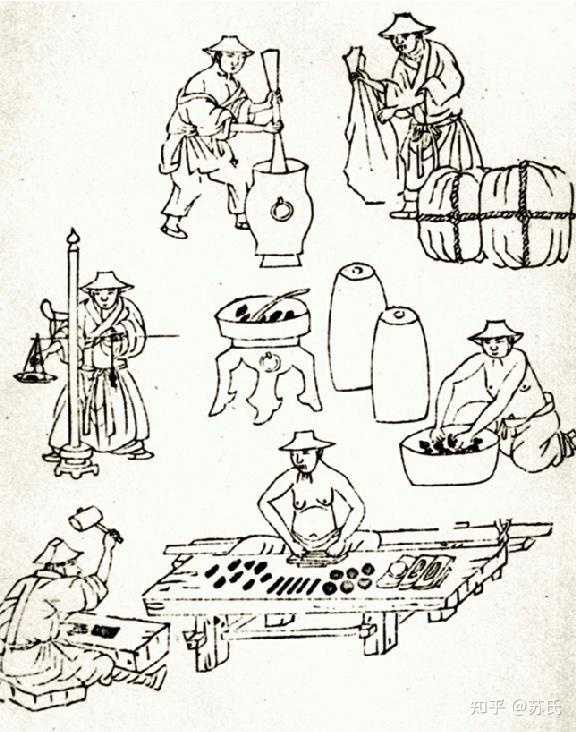 知乎 @苏氏